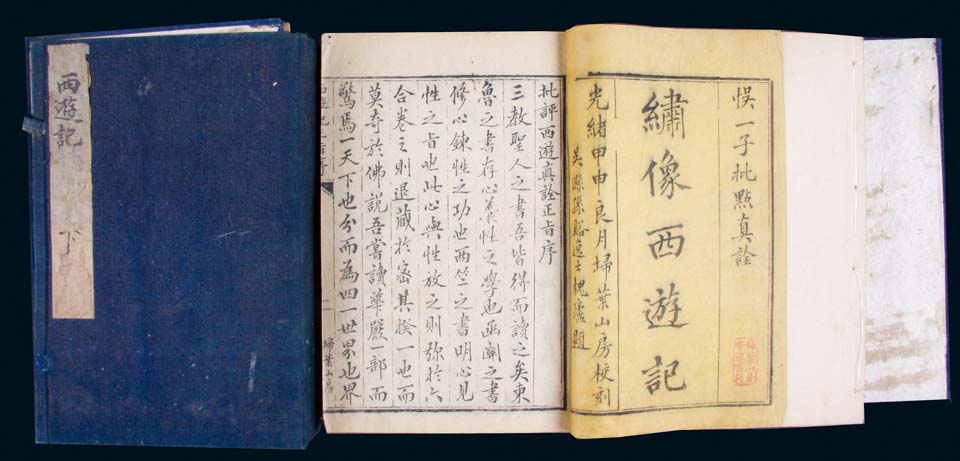 西遊記
下
悞一子批點真詮
繡像西遊記
光緒甲申良月埽葉山房校刻
吳縣孫谿逸士槐廬題
批評西遊真詮正旨序
三教聖人之書吾皆得而讀之矣東
魯之書存心養性之學也函關之書
修心鍊性之功也西竺之書明心見
性之旨也此心與性放之則彌於六
合卷之則退藏於密其揆一也而
莫奇於佛說吾嘗讀華嚴一部而
驚焉一天下也分而為四一世界也界
埽葉山房